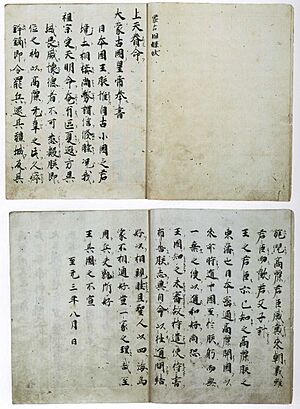 蒙古國牒状
上天眷命
大蒙古國皇帝奉書
日本國王朕惟自古小國之君
境土相接尚務講信修睦況我
祖宗受天明命奄有區夏遐方異
域畏威懷德者不可悉數朕即
位之初以高麗无辜之民久瘁
鋒鏑即令罷兵還其疆域反其
旄倪高麗君臣感戴來朝義雖
君臣而歡若父子計
王之君臣亦已知之高麗朕之
東藩也日本密邇高麗開國以
來亦時通中國至於朕躬而無
一乘之使以通和好尚恐
王國知之未審故特遣使持書
布告朕志冀自今以往通問結
好以相親睦且聖人以四海為
家不相通好豈一家之理哉至
用兵夫孰所好
王其圖之不宣
至元三年八月 日